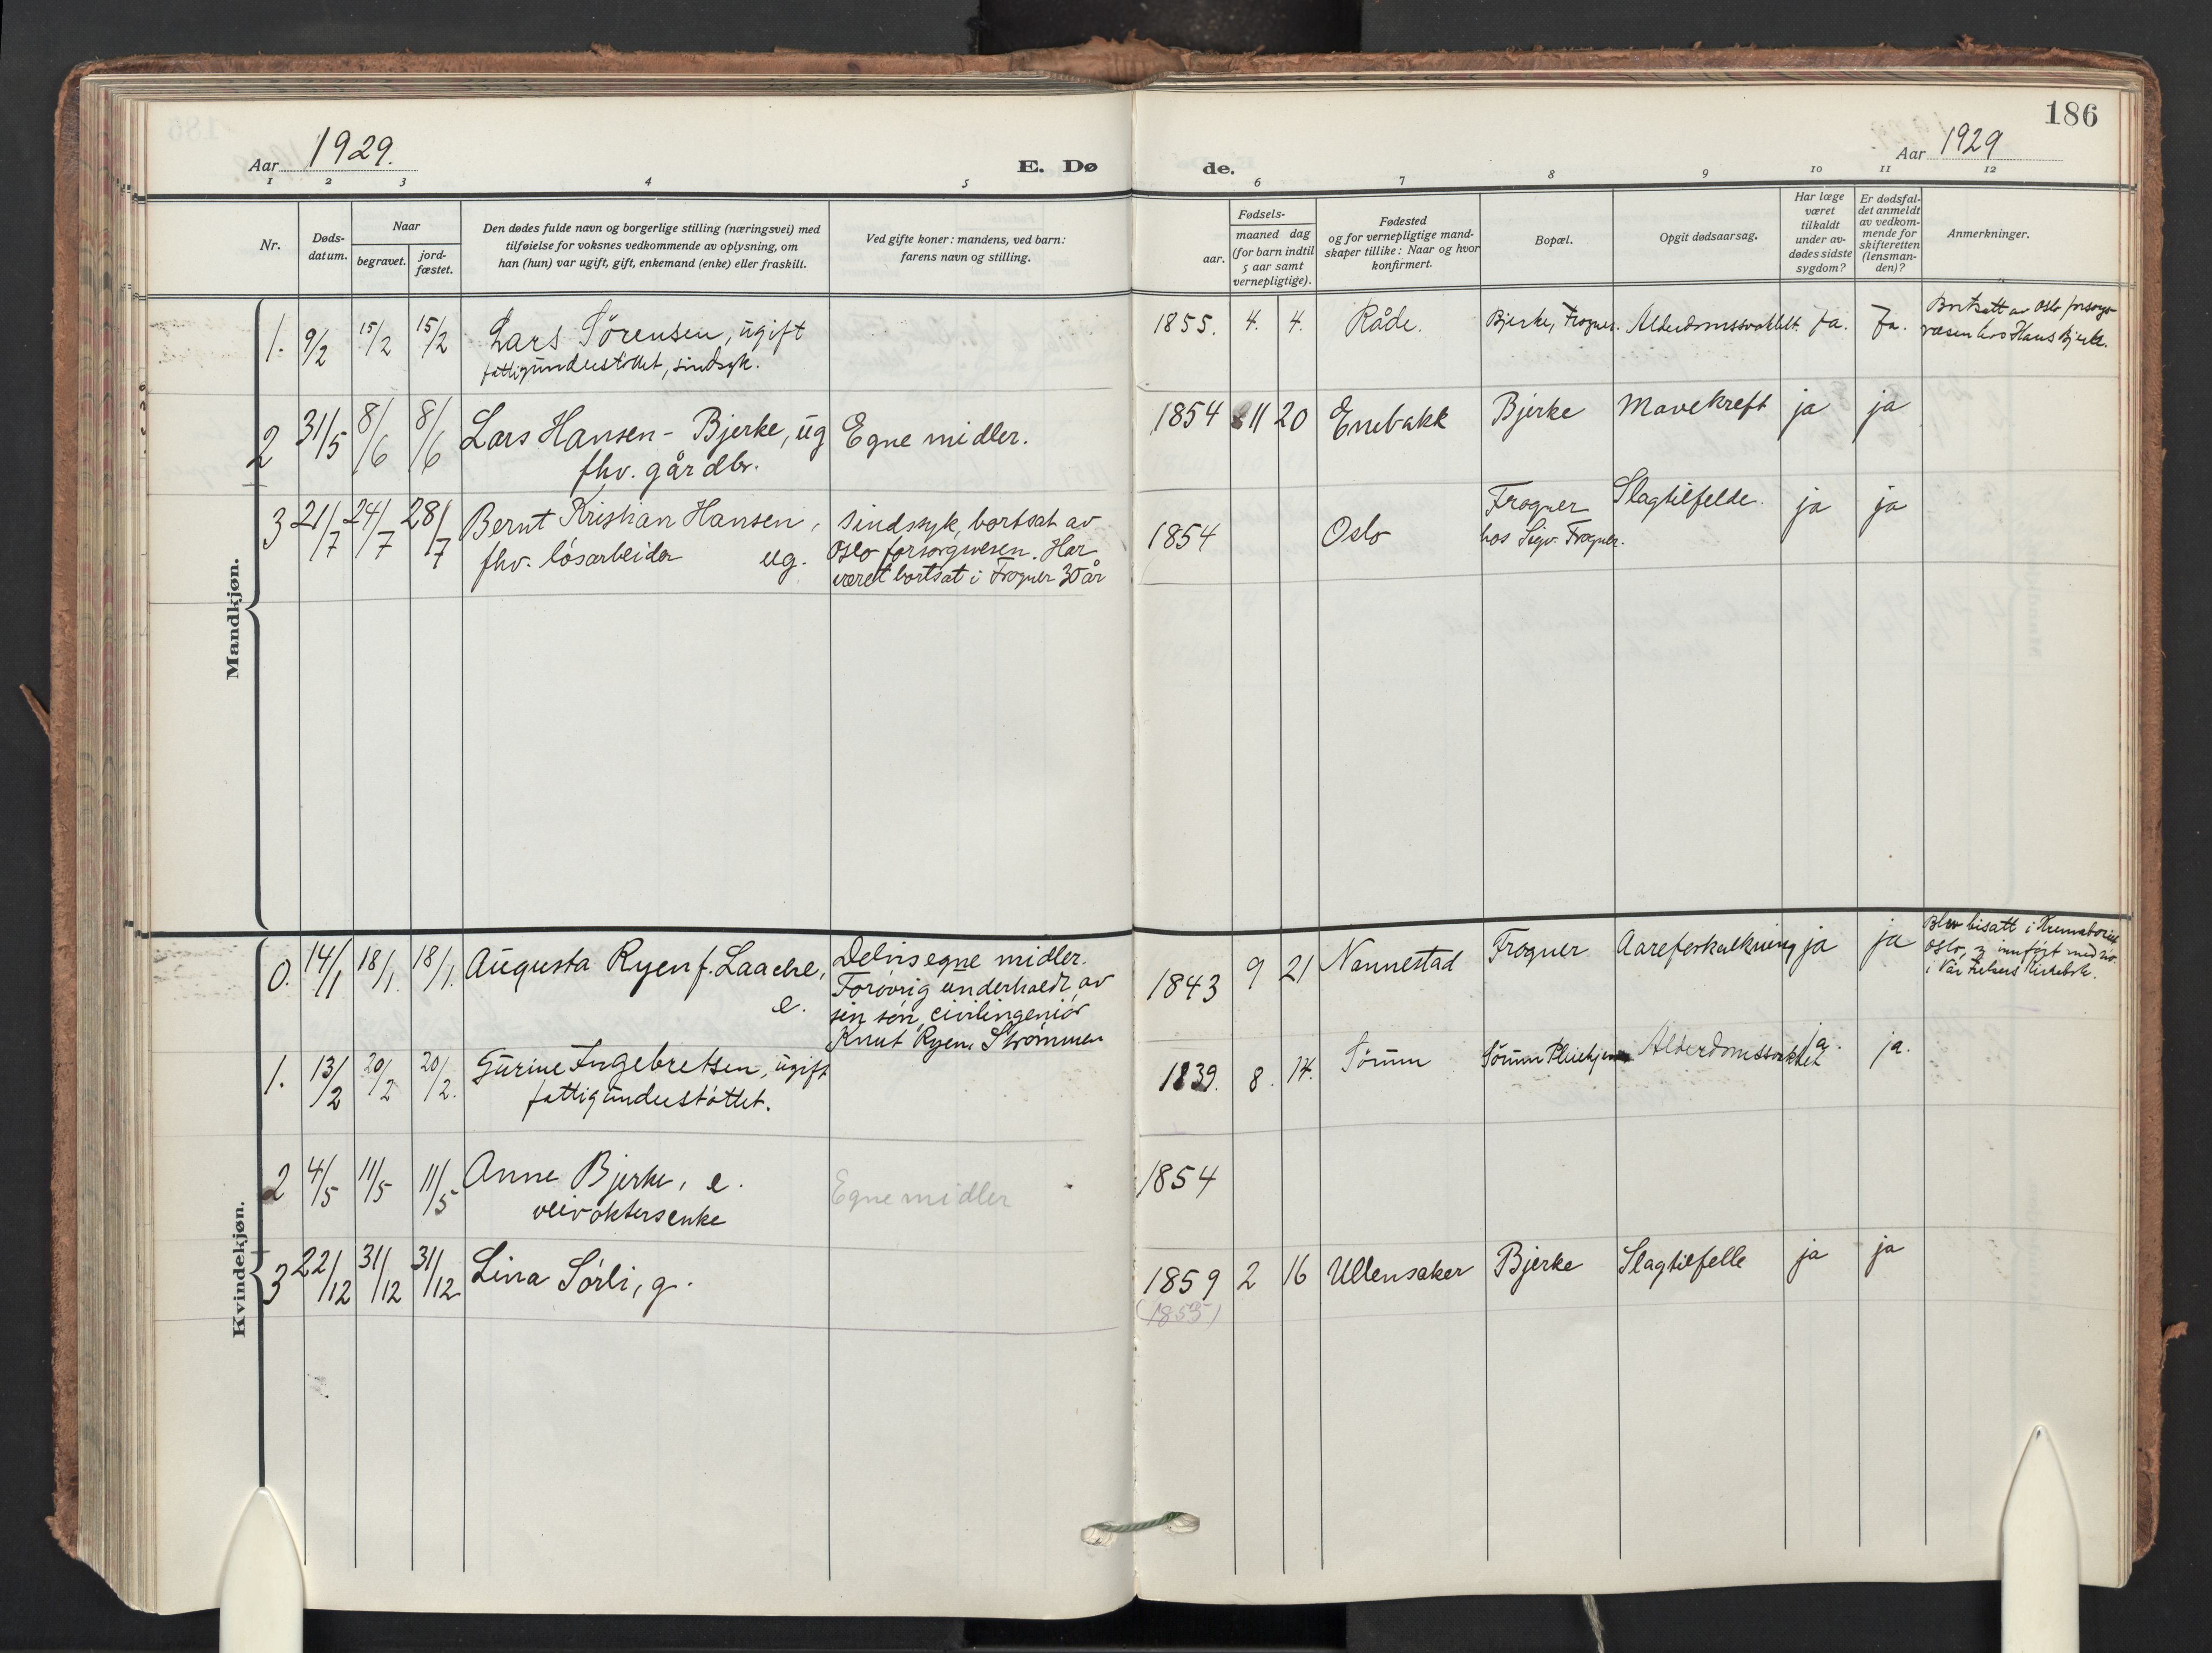 186
Aar 1929.
E. Dø
de.
Aar 1929
1 2 3 4 5 6 7 8 9 10 11 12
Nr.
Døds-
datum.
Naar
begravet.
jord-
fæstet.
Den dødes fulde navn og borgerlige stilling (næringsvei) med
tilføielse for voksnes vedkommende av oplysning, om
han (hun) var ugift, gift, enkemand (enke) eller fraskilt.
Ved gifte koner: mandens, ved barn:
farens navn og stilling.
Fødsels-
aar.
maaned dag
(for barn indtil
5 aar samt
vernepligtige).
Fødested
og for vernepligtige mand-
skaper tillike: Naar og hvor
konfirmert.
Bopæl.
Opgit dødsaarsag.
Har læge
været
tilkaldt
under av-
dødes sidste
sygdom?
Er dødsfal-
det anmeldt
av vedkom-
mende for
skifteretten
(lensman-
den)?
Anmerkninger.
Mandkjøn.
1. 9/2 15/2 15/2 Lars Sörensen, ugift
fattigunderstöttet, sindsyk.
1855. 4. 4. Råde. Bjerke, Frogner. Alderdomssvakhet. Ja. Ja.
Bortsatt av Oslo forsorgs-
væsen hos Hans Bjerke.
2 31/5 8/6 8/6 Lars Hansen - Bjerke, ug
fhv. gårdbr.
Egne midler.
1854 11 20 Enebakk Bjerke Mavekreft ja ja
3 21/7 24/7 28/7 Bernt Kristian Hansen,
fhv. lösarbeider ug.
sindssyk, bortsat av
Oslo forsorgvesen. Har
været bortsat i Frogner 30 år
1854 Oslo Frogner
hos Sigv. Frogner.
Slagtilfelde. ja ja
Kvindekjøn.
0. 14/1 18/1. 18/1. Augusta Ryen f. Laache,
e.
Delvis egne midler.
Forövrig underholdt av
sin sön, civilingeniör
Knut Ryen, Strömmen
1843 9 21 Nannestad Frogner Aareforkalkning ja ja
Blev bisatt i Krematoriet
Oslo, og innfört med no.
i Vår Frelsers Kirkebok.
1. 13/2 20/2 20/2. Gurine Ingebretsen, ugift
fattigunderstöttet.
1839. 8. 14. Sörum Sörum Pleiehjem Alderdomssvakhet ja. ja.
2 4/5 11/5 11/5 Anne Bjerke, e.
veivokters enke
Egne midler
1854
3 22/12 31/12 31/12 Lina Sörli, g.
1859 2 16 Ullensaker Bjerke Slagtilfelle ja ja
(1855)